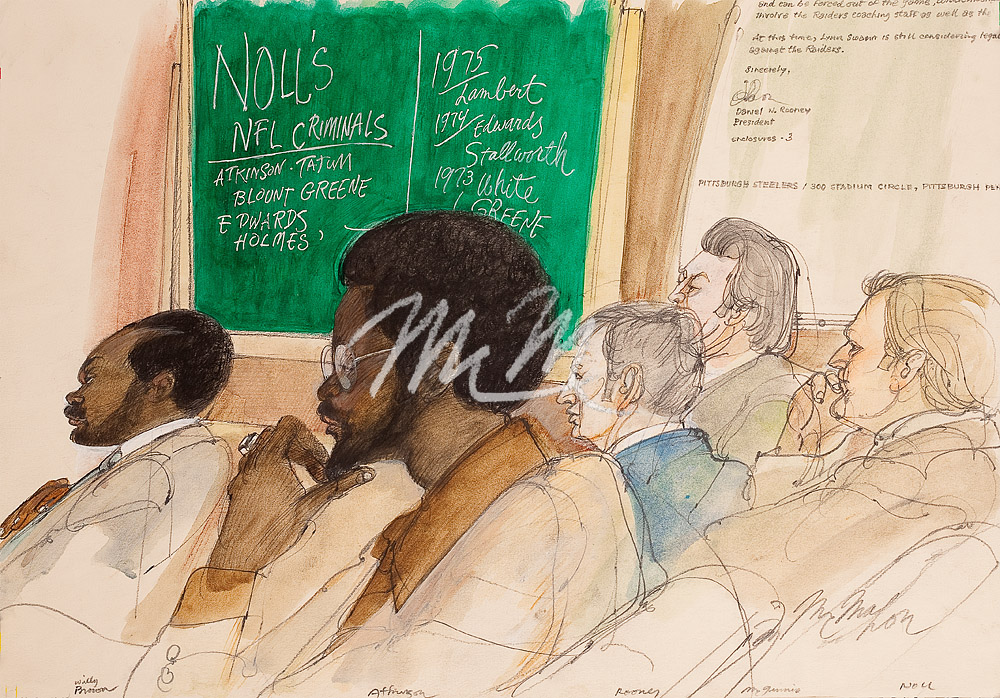 NOLL'S
NFL CRIMINALS
ATKINSON · TATUM
BLOUNT GREENE
EDWARDS
HOLMES,
1975
Lambert
1974 Edwards
Stallworth
1973 White
GREENE
and can be forced out of the game,
involve the Raiders coaching staff as well as the
At this time, Lynn Swann is still considering legal
against the Raiders.
Sincerely,
Daniel M. Rooney
President
enclosures - 3
PITTSBURGH STEELERS / 300 STADIUM CIRCLE, PITTSBURGH PEN
McMahon
Willy
Brown
Atkinson
Rooney
McGinnis
NOLL